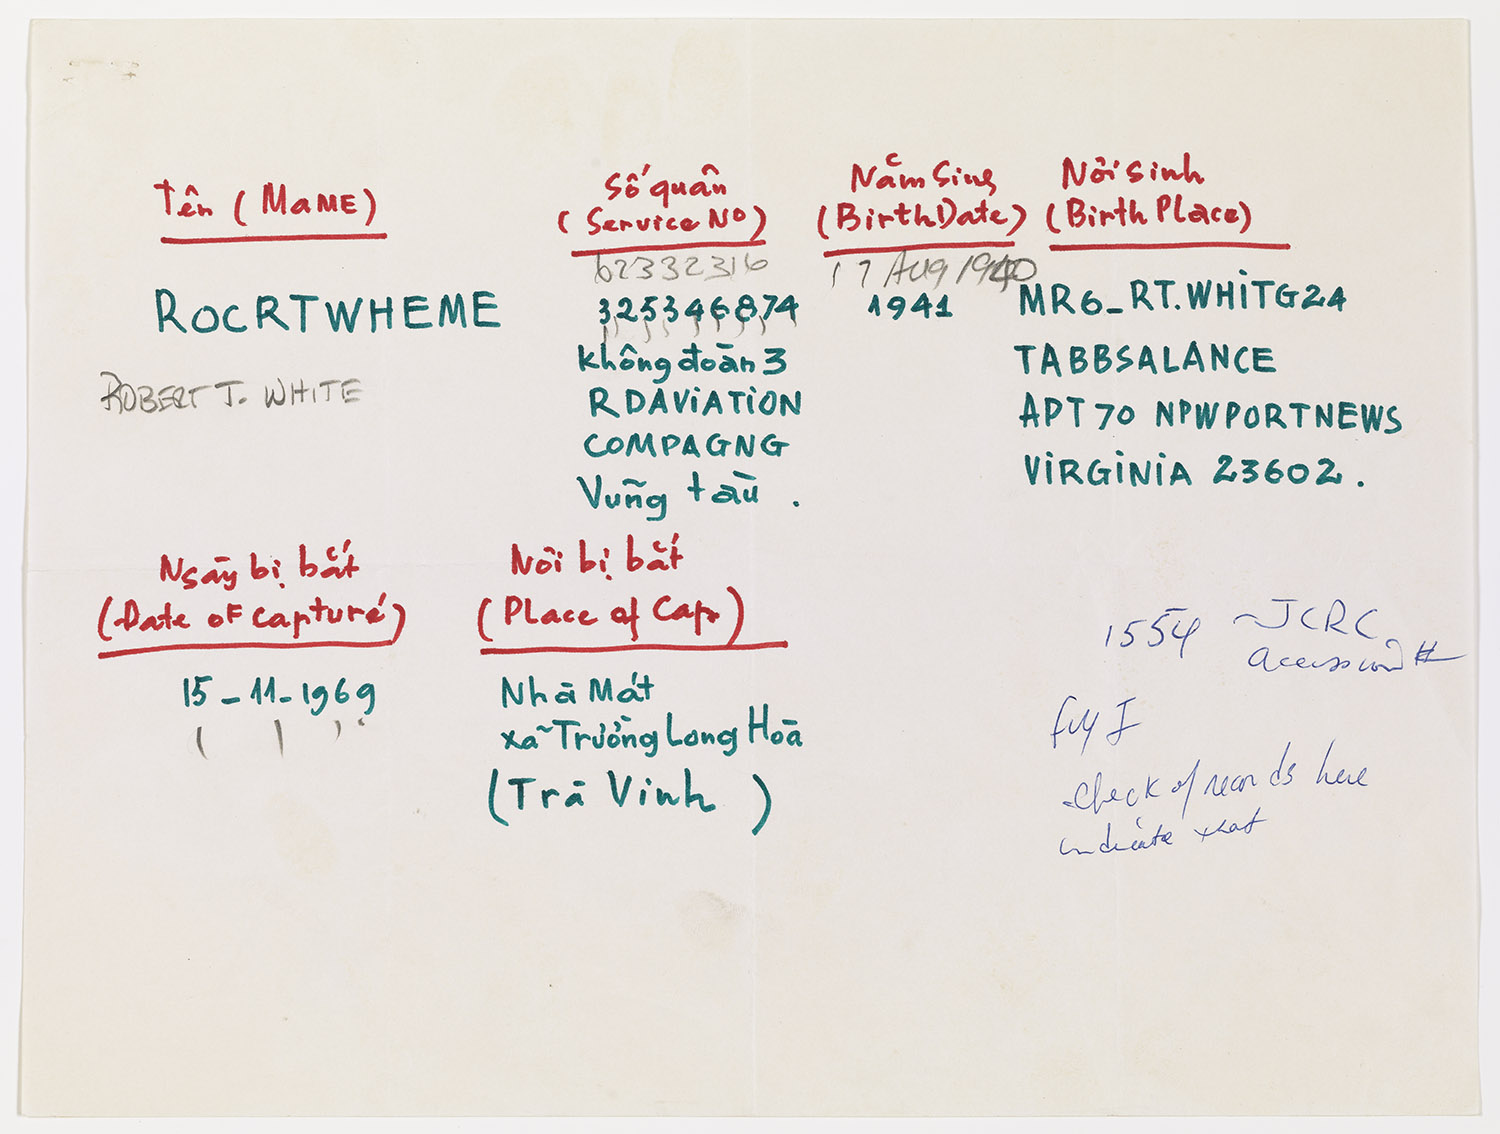 Tên ( MaME )
Số quân
( Service No )
Năm Sing
( BirthDate )
Nơi sinh
( Birth Place )
62332316
17 AUG 1940
ROCRTWHEME
325346874
1941
MR6_RT.WHiTG24
ROBERT T. WHITE
không đoàn 3
RDAViATiON
COMPAGNG
Vũng tàu .
TABBSALANCE
APT 70 NPWPORTNEWS
ViRGiNiA 23602.
Ngày bị bắt
( Date of capturé )
Nơi bị bắt
( Place of Cap )
15-11-1969
Nhà Mát
xã Trường Long Hoà
( Trà Vinh )
1554 ~ JCRC
acession #
fyI
check of records here
indicate that